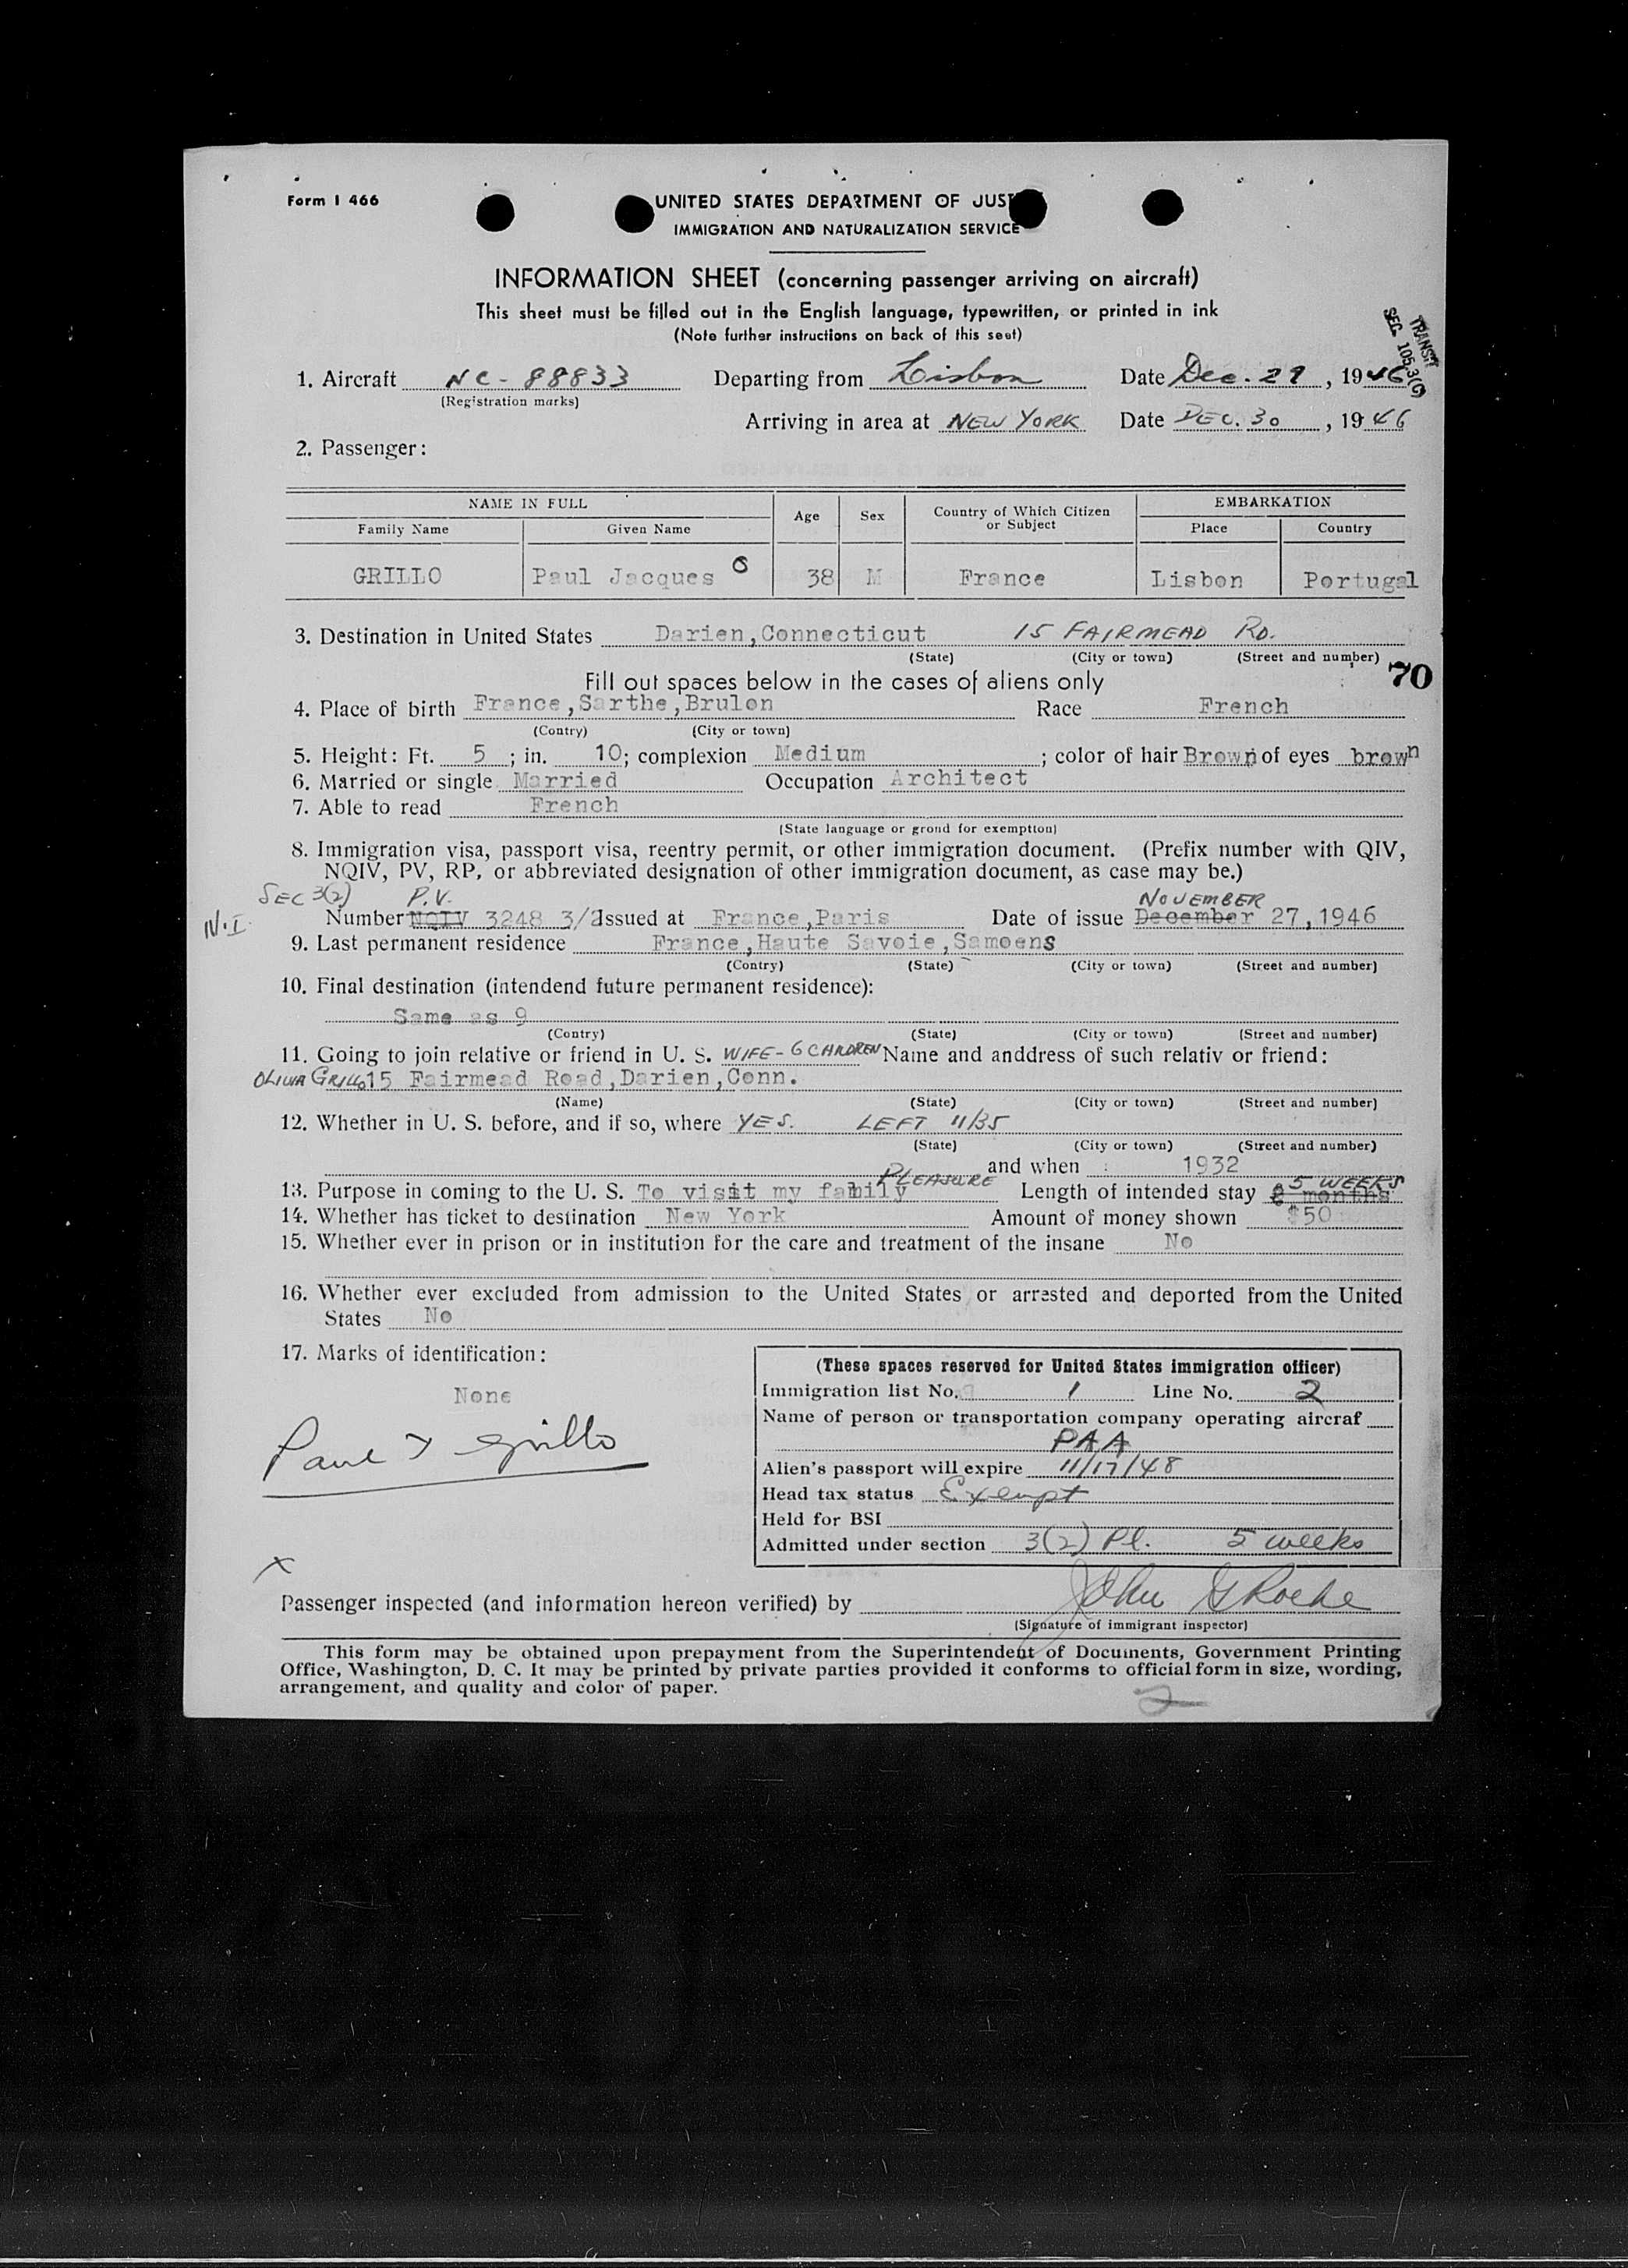 Form I 466
UNITED STATES DEPARTMENT OF JUST
IMMIGRATION AND NATURALIZATION SERVICE
INFORMATION SHEET (concerning passenger arriving on aircraft)
This sheet must be filled out in the English language, typewritten, or printed in ink
(Note further instructions on back of this seet)
TRANSIT
SEC. 105.3(C)
1. Aircraft NC-88833 Departing from Lisbon Date Dec. 29, 1946
(Registration marks)
Arriving in area at NEW YORK Date DEC. 30, 1946
2. Passenger:
NAME IN FULL Age Sex Country of Which Citizen or Subject EMBARKATION
Family Name Given Name Place Country
GRILLO Paul Jacques 38 M France Lisbon Portugal
3. Destination in United States Darien,Connecticut 15 FAIRMEAD RD.
(State) (City or town) (Street and number)
70
Fill out spaces below in the cases of aliens only
4. Place of birth France,Sarthe,Brulon Race French
(Contry) (City or town)
5. Height: Ft. 5 ; in. 10; complexion Medium ; color of hair Brown of eyes brown
6. Married or single Married Occupation Architect
7. Able to read French
(State language or grond for exemption)
8. Immigration visa, passport visa, reentry permit, or other immigration document. (Prefix number with QIV,
NQIV, PV, RP, or abbreviated designation of other immigration document, as case may be.)
SEC 3(2) P.V. NOVEMBER
N.I. Number NQIV 3248 3/2 Issued at France,Paris Date of issue December 27,1946
9. Last permanent residence France,Haute Savoie,Samoens
(Contry) (State) (City or town) (Street and number)
10. Final destination (intendend future permanent residence):
Same as 9
(Contry) (State) (City or town) (Street and number)
11. Going to join relative or friend in U. S. WIFE - 6 CHILDREN Name and anddress of such relativ or friend:
OLIVIA GRILLO 15 Fairmead Road,Darien,Conn.
(Name) (State) (City or town) (Street and number)
12. Whether in U. S. before, and if so, where YES. LEFT 11/35
(State) (City or town) (Street and number)
and when : 1932
PLEASURE 5 WEEKS
13. Purpose in coming to the U. S. To visit my family Length of intended stay 2 months
14. Whether has ticket to destination New York Amount of money shown $50
15. Whether ever in prison or in institution for the care and treatment of the insane No
16. Whether ever excluded from admission to the United States or arrested and deported from the United
States No
17. Marks of identification:
None
Paul J Grillo
(These spaces reserved for United States immigration officer)
Immigration list No. 1 Line No. 2
Name of person or transportation company operating aircraf
PAA
Alien's passport will expire 11/17/48
Head tax status Exempt
Held for BSI
Admitted under section 3(2) Pl. 5 weeks
X
Passenger inspected (and information hereon verified) by John G Roche
(Signature of immigrant inspector)
This form may be obtained upon prepayment from the Superintendent of Documents, Government Printing
Office, Washington, D. C. It may be printed by private parties provided it conforms to official form in size, wording,
arrangement, and quality and color of paper.
2